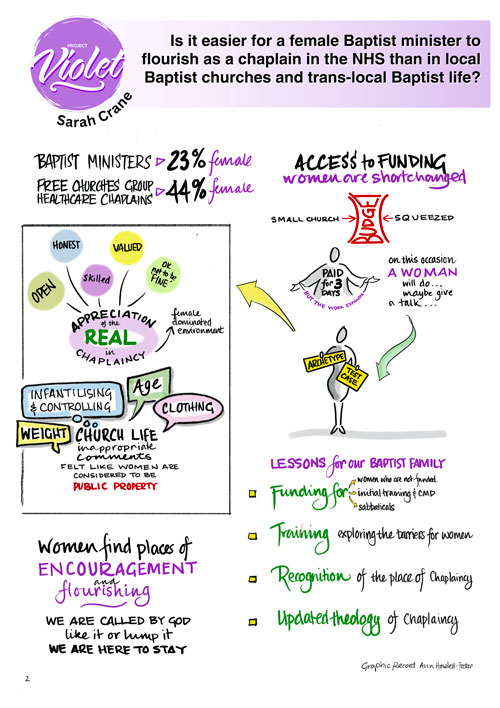 PROJECT
Violet
Sarah Crane
Is it easier for a female Baptist minister to
flourish as a chaplain in the NHS than in local
Baptist churches and trans-local Baptist life?
BAPTIST MINISTERS 23% female
FREE CHURCHES GROUP
HEALTHCARE CHAPLAINS 44% female
HONEST
VALUED
OPEN
Skilled
OK
not to be
FINE
APPRECIATION
of the
REAL
in
CHAPLAINCY
female
dominated
environment
INFANTILISING
& CONTROLLING
Age
CLOTHING
WEIGHT
CHURCH LIFE
inappropriate
comments
FELT LIKE WOMEN ARE
CONSIDERED TO BE
PUBLIC PROPERTY
Women find places of
ENCOURAGEMENT
and
flourishing
WE ARE CALLED BY GOD
like it or lump it
WE ARE HERE TO STAY
ACCESS to FUNDING
women are shortchanged
SMALL CHURCH
BUDGE
SQUEEZED
PAID
for 3
DAYS
BUT THE WORK EXPANDS
on this occasion
A WOMAN
will do...
maybe give
a talk...
ARCHETYPE
TEST
CASE
LESSONS for our BAPTIST FAMILY
Funding for
women who are not funded
initial training & CMD
sabbaticals
Training exploring the barriers for women
Recognition of the place of Chaplaincy
Updated theology of Chaplaincy
Graphic Record Ann Howlett-Foster
2